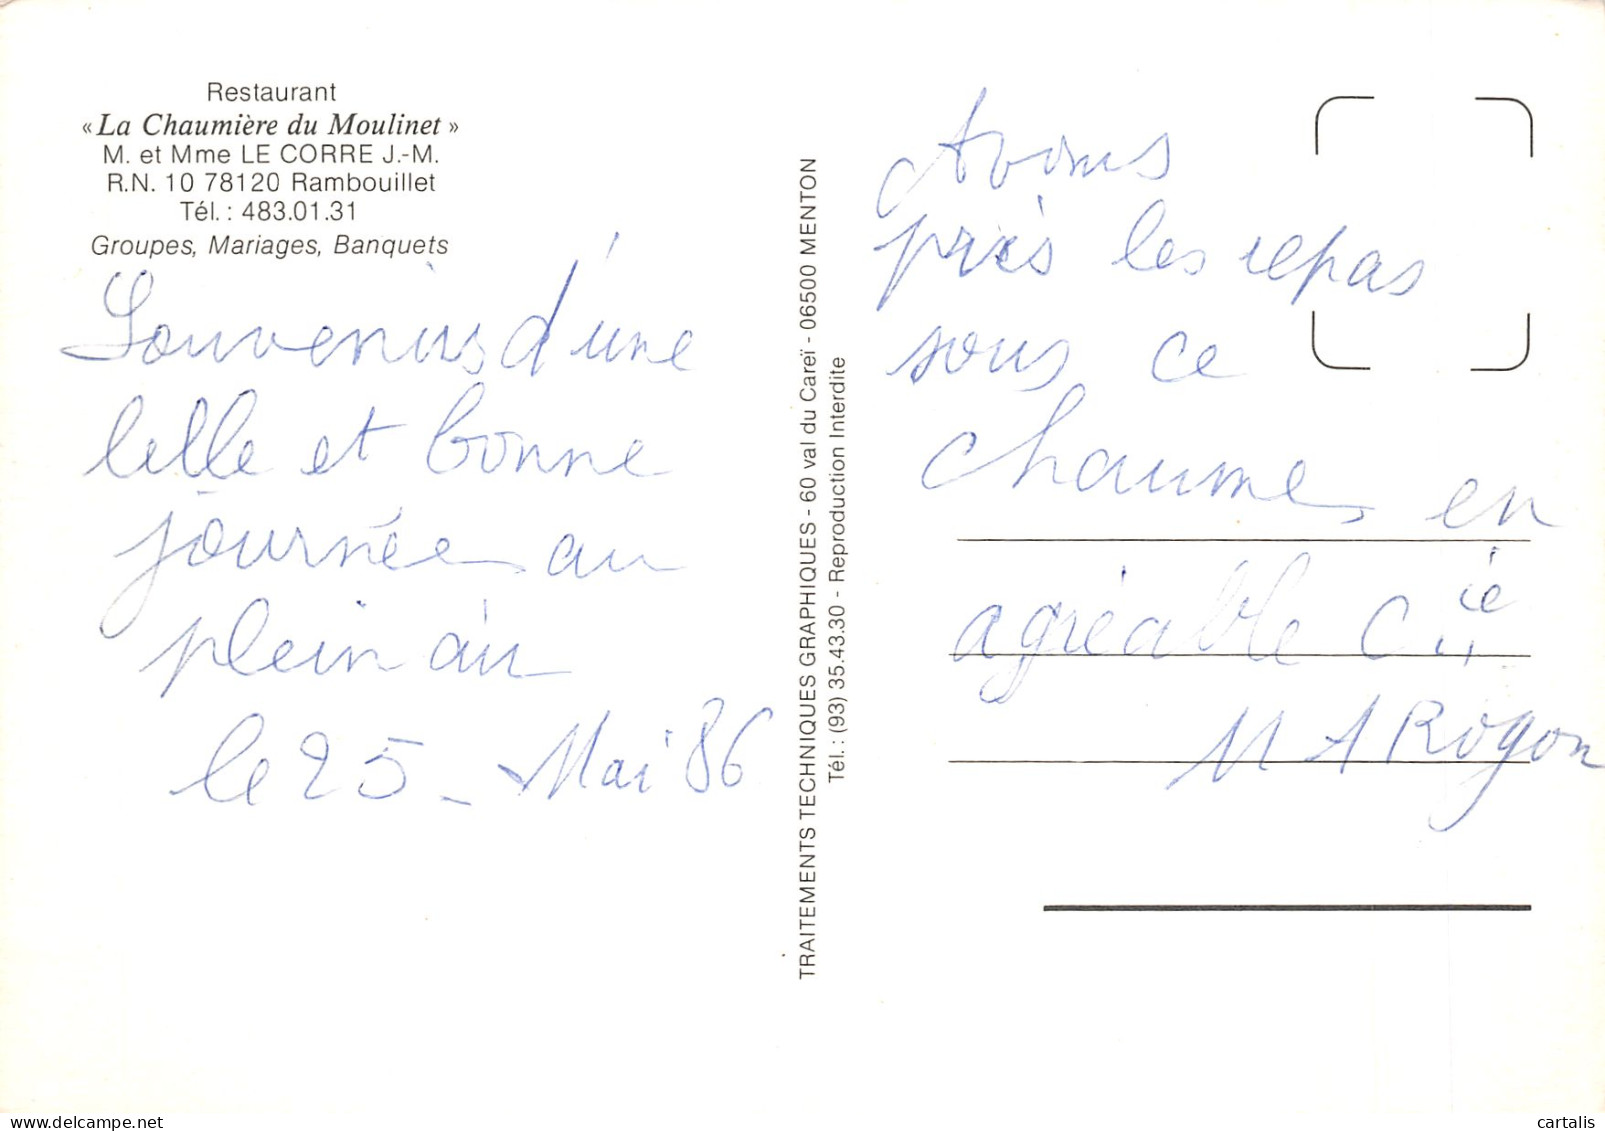 Restaurant
« La Chaumière du Moulinet »
M. et Mme LE CORRE J.-M.
R.N. 10 78120 Rambouillet
Tél. : 483.01.31
Groupes, Mariages, Banquets
Souvenirs d'une
belle et bonne
journée au
plein air
le 25 - Mai 86
TRAITEMENTS TECHNIQUES GRAPHIQUES - 60 val du Careï - 06500 MENTON
Tél. : (93) 35.43.30 - Reproduction Interdite
Avons
pris les repas
sous ce
chaume en
agréable Cie
M A Rogon
cartalis